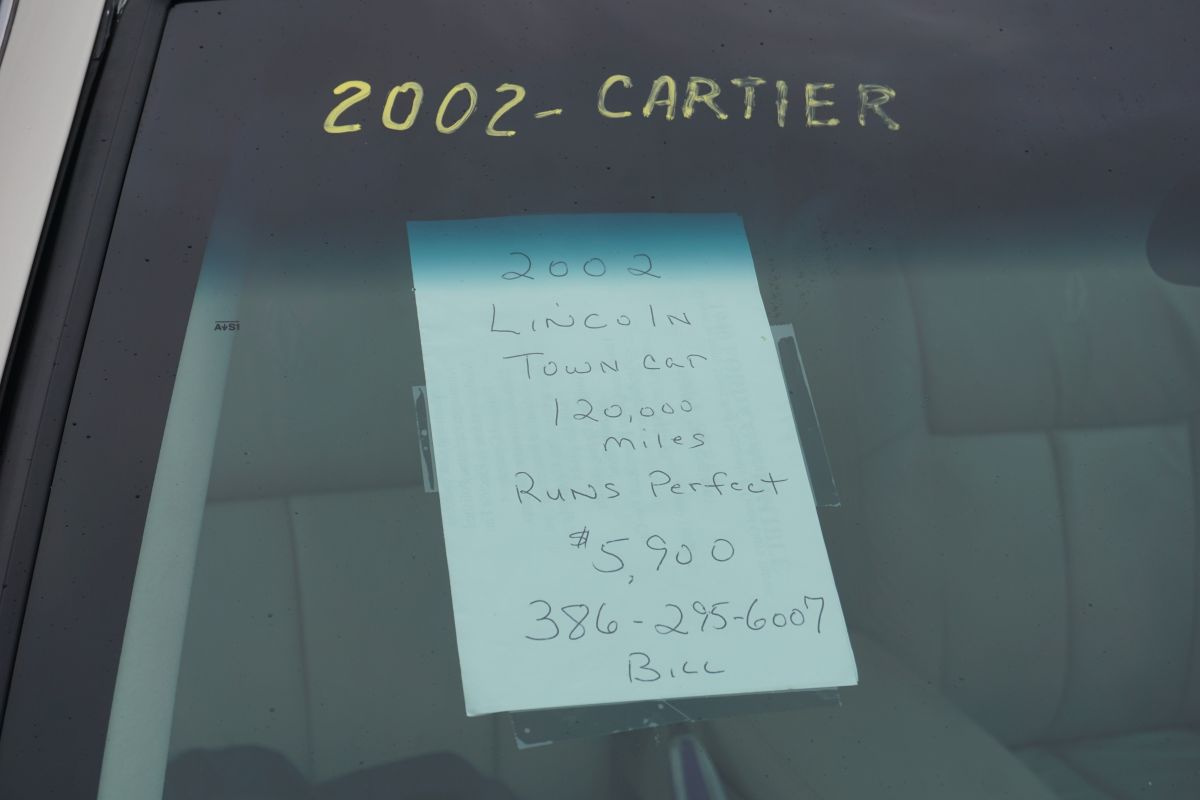 2002- CARTIER
2002
LINCOLN
TOWN Car
120,000
miles
RUNS Perfect
$5,900
386-295-6007
BILL